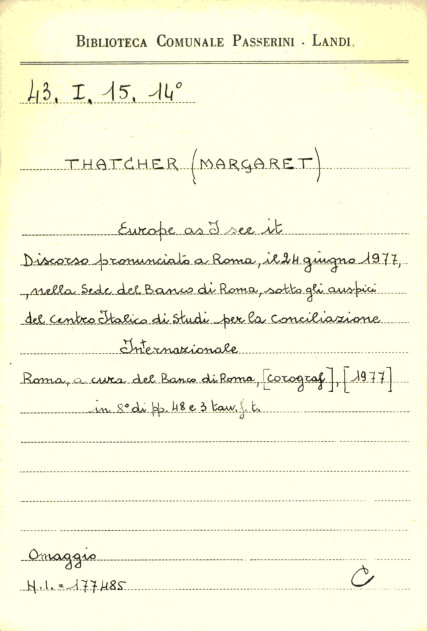 BIBLIOTECA COMUNALE PASSERINI - LANDI.
43. I. 15. 14°
THATCHER (MARGARET)
Europe as I see it
Discorso pronunciato a Roma, il 24 giugno 1977,
, nella Sede del Banco di Roma, sotto gli auspici
del Centro Italico di Studi per la Conciliazione
Internazionale
Roma, a cura del Banco di Roma, [Corograf], [1977]
in 8° di pp. 48 e 3 tav. f. t.
Omaggio
N. I. = 177485
C